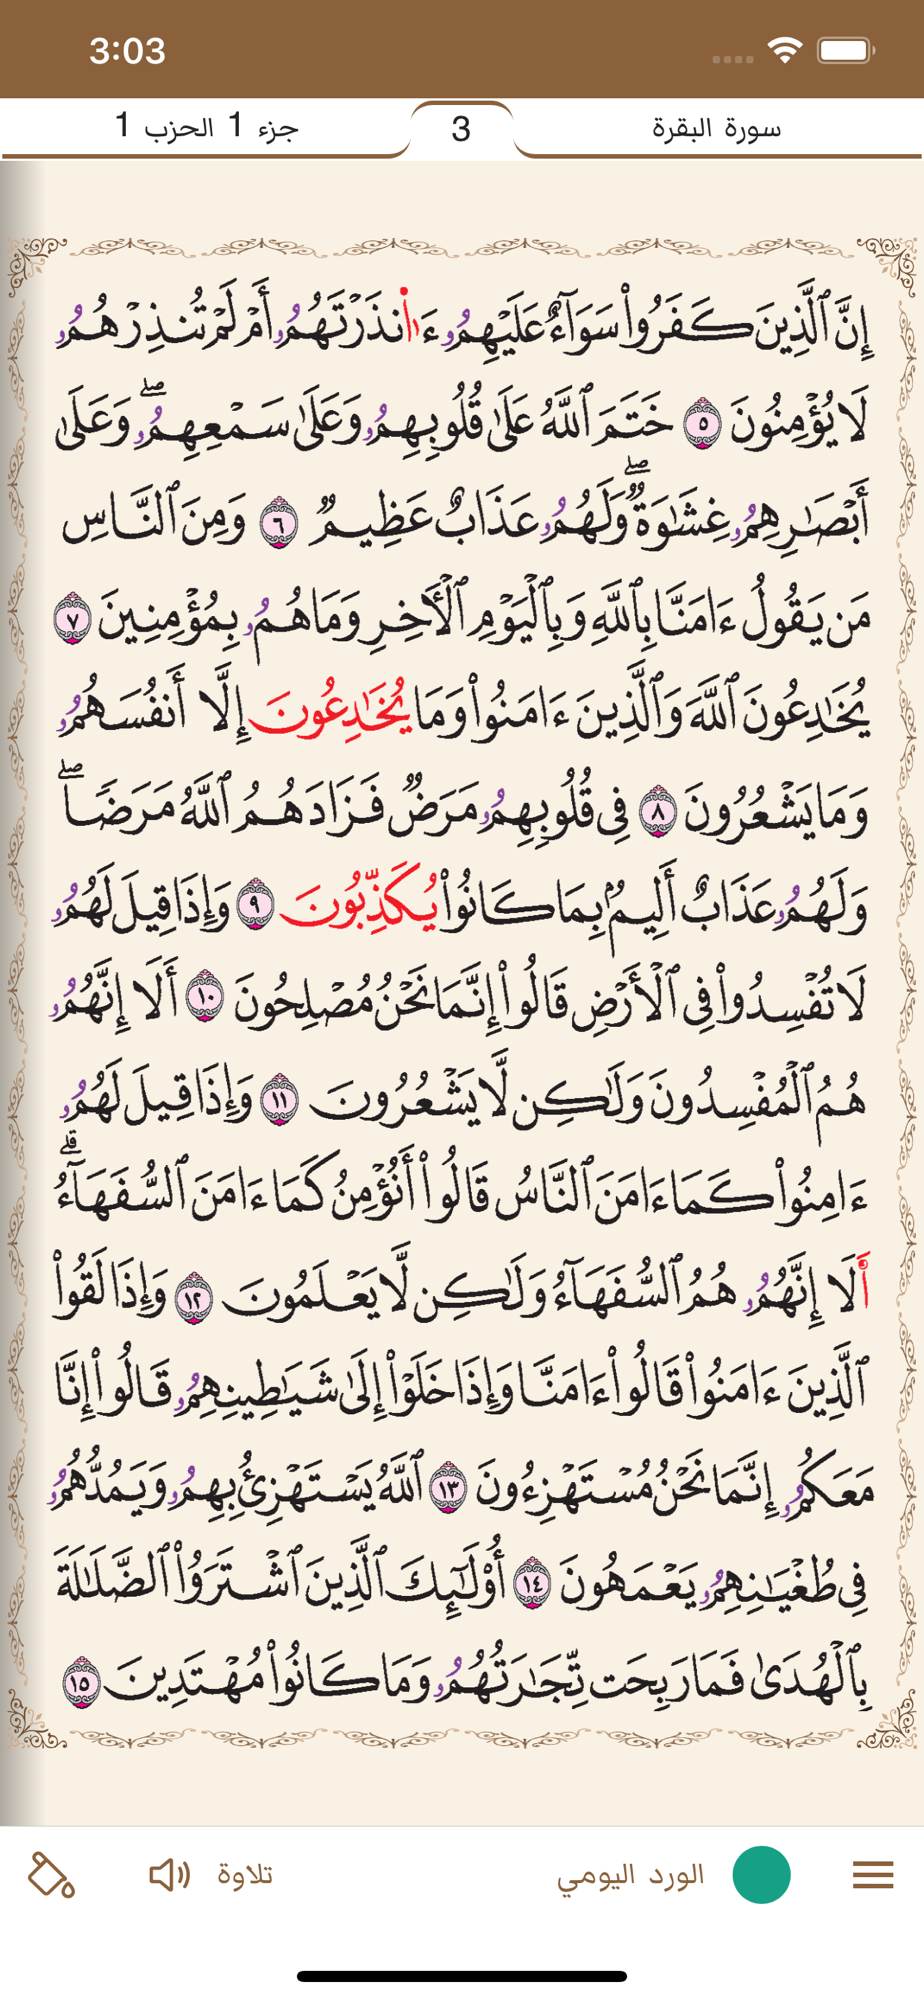 3:03
سورة البقرة
3
جزء 1 الحزب 1
إِنَّ ٱلَّذِينَ كَفَرُواْ سَوَآءٌ عَلَيْهِمُۥ ءَا۬نذَرْتَهُمُۥ أَمْ لَمْ تُنذِرْهُمُۥ
لَا يُؤْمِنُونَ ٥ خَتَمَ ٱللَّهُ عَلَىٰ قُلُوبِهِمُۥ وَعَلَىٰ سَمْعِهِمُۥۖ وَعَلَىٰ
أَبْصَٰرِهِمُۥ غِشَٰوَةٌۖ وَلَهُمُۥ عَذَابٌ عَظِيمٌ ٦ وَمِنَ ٱلنَّاسِ
مَن يَقُولُ ءَامَنَّا بِٱللَّهِ وَبِٱلْيَوْمِ ٱلْأَخِرِ وَمَا هُمُۥ بِمُؤْمِنِينَ ٧
يُخَٰدِعُونَ ٱللَّهَ وَٱلَّذِينَ ءَامَنُواْ وَمَا يُخَٰدِعُونَ إِلَّا أَنفُسَهُمُۥ
وَمَا يَشْعُرُونَ ٨ فِى قُلُوبِهِمُۥ مَرَضٌ فَزَادَهُمُ ٱللَّهُ مَرَضًاۖ
وَلَهُمُۥ عَذَابٌ أَلِيمٌۢ بِمَا كَانُواْ يُكَذِّبُونَ ٩ وَإِذَا قِيلَ لَهُمُۥ
لَا تُفْسِدُواْ فِى ٱلْأَرْضِ قَالُواْ إِنَّمَا نَحْنُ مُصْلِحُونَ ١٠ أَلَا إِنَّهُمُۥ
هُمُ ٱلْمُفْسِدُونَ وَلَٰكِن لَّا يَشْعُرُونَ ١١ وَإِذَا قِيلَ لَهُمُۥ
ءَامِنُواْ كَمَا ءَامَنَ ٱلنَّاسُ قَالُواْ أَنُؤْمِنُ كَمَا ءَامَنَ ٱلسُّفَهَآءُۗ
أَلَا إِنَّهُمُۥ هُمُ ٱلسُّفَهَآءُ وَلَٰكِن لَّا يَعْلَمُونَ ١٢ وَإِذَا لَقُواْ
ٱلَّذِينَ ءَامَنُواْ قَالُواْ ءَامَنَّا وَإِذَا خَلَوْاْ إِلَىٰ شَيَٰطِينِهِمُۥ قَالُواْ إِنَّا
مَعَكُمُۥ إِنَّمَا نَحْنُ مُسْتَهْزِءُونَ ١٣ ٱللَّهُ يَسْتَهْزِئُ بِهِمُۥ وَيَمُدُّهُمُۥ
فِى طُغْيَٰنِهِمُۥ يَعْمَهُونَ ١٤ أُوْلَٰٓئِكَ ٱلَّذِينَ ٱشْتَرَوُاْ ٱلضَّلَٰلَةَ
بِٱلْهُدَىٰ فَمَا رَبِحَت تِّجَٰرَتُهُمُۥ وَمَا كَانُواْ مُهْتَدِينَ ١٥
الورد اليومي
تلاوة